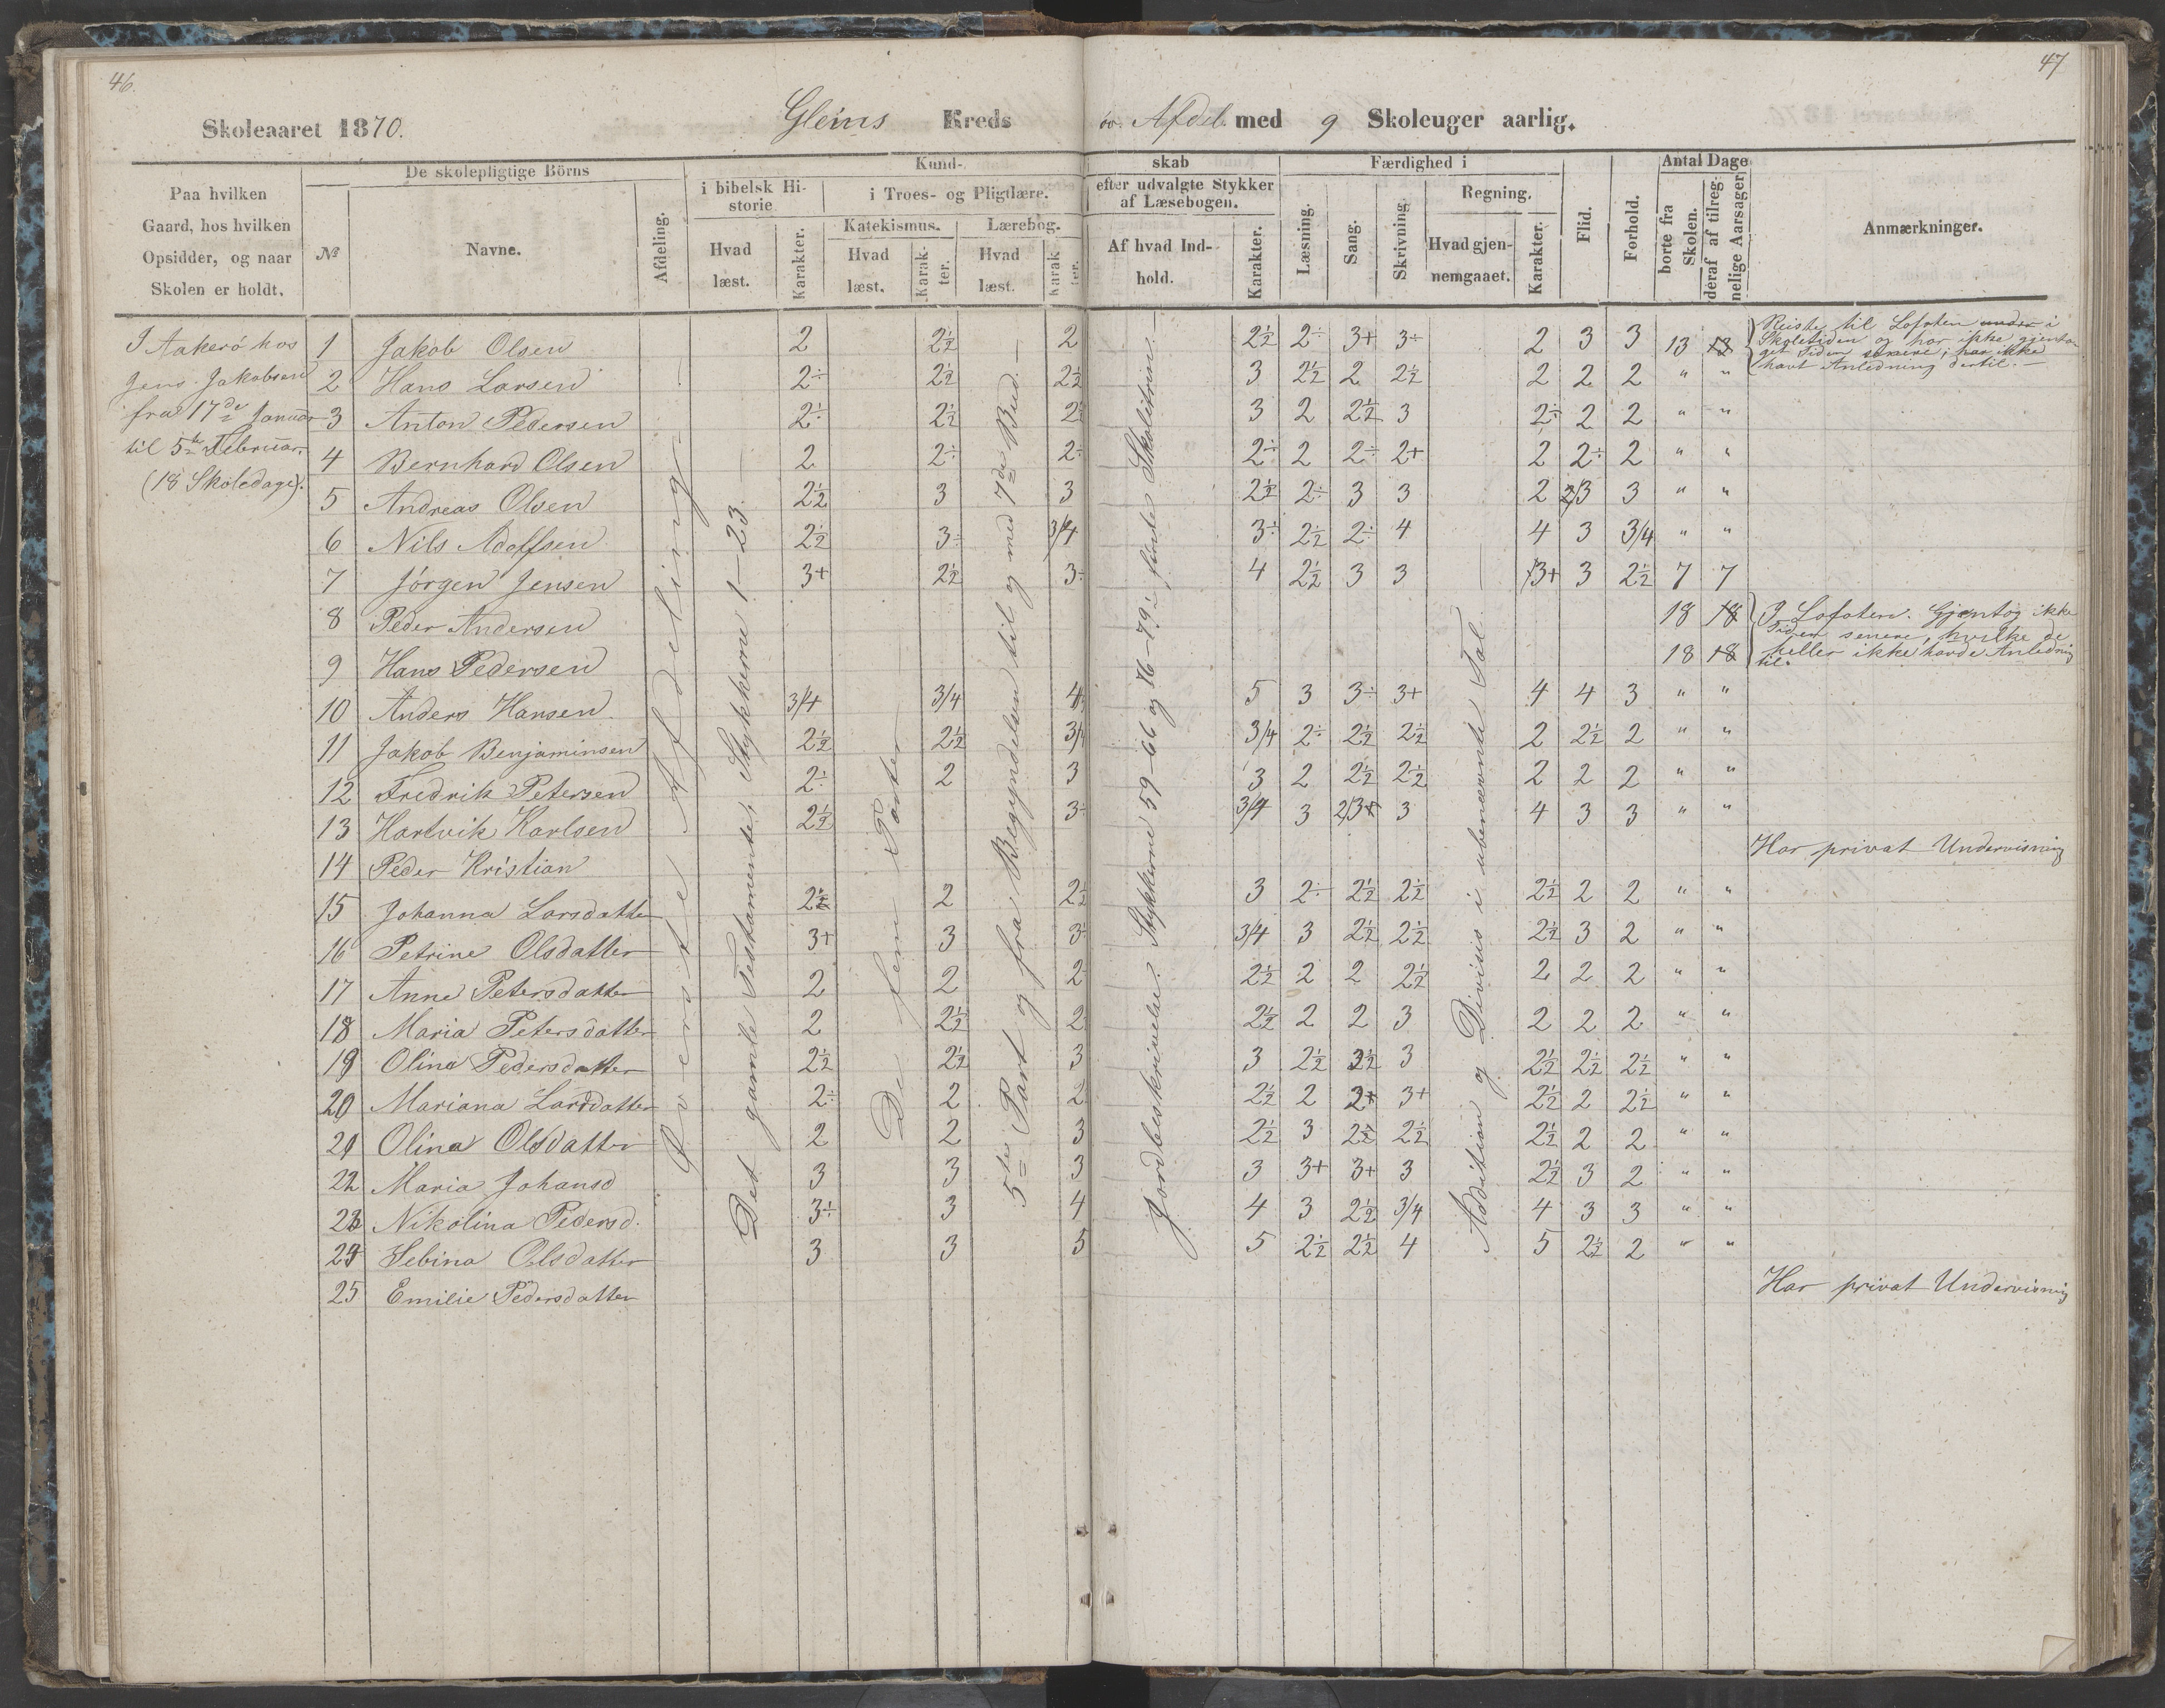 46.
47
Skoleaaret 1870.
Gleins Kreds
öv. Afdel. med 9 Skoleuger aarlig.
Paa hvilken
Gaard, hos hvilken
Opsidder, og naar
Skolen er holdt.
De skolepligtige Börns
№
Navne.
Afdeling.
Kund-
i bibelsk Hi-
storie
Hvad
læst.
Karakter.
i Troes- og Pligtlære.
Katekismus.
Hvad
læst.
Karak-
ter.
Lærebog.
Hvad
læst.
Karak
ter.
skab
efter udvalgte Stykker
af Læsebogen.
Af hvad Ind-
hold.
Karakter.
Færdighed i
Læsning.
Sang.
Skrivning.
Regning.
Hvad gjen-
nemgaaet.
Karakter.
Flid.
Forhold.
Antal Dage
borte fra
Skolen.
deraf af tilreg-
nelige Aarsager
Anmærkninger.
I Aakerö hos
Jens Jakobsen
fra 17de Januar
til 5te Februar.
(18 Skoledage).
Øverste Afdeling
Det gamle Testamente, Stykkerne 1–23.
De fem Parter
5te Part og fra Begyndelsen til og med 7de Bud. —
Jordbeskrivelse. Stykkerne 59–66 og 76–79 i første Skoletrin. —
Addition og Division i ubenævnte Tal. —
1 Jakob Olsen 2 2½ 2 2½ 2÷ 3+ 3÷ 2 3 3 13 13
Reiste til Lofoten under i
Skoletiden og har ikke gjenta-
get Tiden senere; har ikke
havt Anledning dertil. —
2 Hans Larsen 2÷ 2½ 2½ 3 2½ 2 2½ 2 2 2 " "
3 Anton Pedersen 2÷ 2½ 2½ 3 2 2½ 3 2÷ 2 2 " "
4 Bernhard Olsen 2 2÷ 2÷ 2÷ 2 2÷ 2+ 2 2÷ 2 " "
5 Andreas Olsen 2½ 3 3 2½ 2÷ 3 3 2 2/3 3 " "
6 Nils Adolfsen 2½ 3÷ 3/4 3÷ 2½ 2÷ 4 4 3 3/4 " "
7 Jörgen Jensen 3+ 2½ 3÷ 4 2½ 3 3 3+ 3 2½ 7 7
8 Peder Andersen 18 18
I Lofoten. Gjentog ikke
Tiden senere, hvilke de
heller ikke havde Anledning
til.
9 Hans Pedersen 18 18
10 Anders Hansen 3/4 3/4 4 5 3 3÷ 3+ 4 4 3 " "
11 Jakob Benjaminsen 2½ 2½ 3/4 3/4 2÷ 2½ 2½ 2 2½ 2 " "
12 Fredrik Petersen 2÷ 2 3 3 2 2½ 2½ 2 2 2 " "
13 Hartvik Karlsen 2½ 3÷ 3/4 3 2/3+ 3 4 3 3 " "
14 Peder Kristian Har privat Undervisning
15 Johanna Larsdatter 2½ 2 2½ 3 2÷ 2½ 2½ 2½ 2 2 " "
16 Petrine Olsdatter 3+ 3 3÷ 3/4 3 2½ 2½ 2½ 3 2 " "
17 Anne Petersdatter 2 2 2÷ 2½ 2 2 2½ 2 2 2 " "
18 Maria Petersdatter 2 2½ 2 2½ 2 2 3 2 2 2 " "
19 Olina Pedersdatter 2½ 2½ 3 3 2½ 2½ 3 2½ 2½ 2½ " "
20 Mariana Larsdatter 2÷ 2 2 2½ 2 2+ 3+ 2½ 2 2½ " "
21 Olina Olsdatter 2 2 3 2½ 3 2½ 2½ 2½ 2 2 " "
22 Maria Johansd 3 3 3 3 3+ 3+ 3 2½ 3 2 " "
23 Nikolina Pedersd. 3÷ 3 4 4 3 2½ 3/4 4 3 3 " "
24 Sebina Olsdatter 3 3 5 5 2½ 2½ 4 5 2½ 2 " "
25 Emilie Pedersdatter Har privat Undervisning